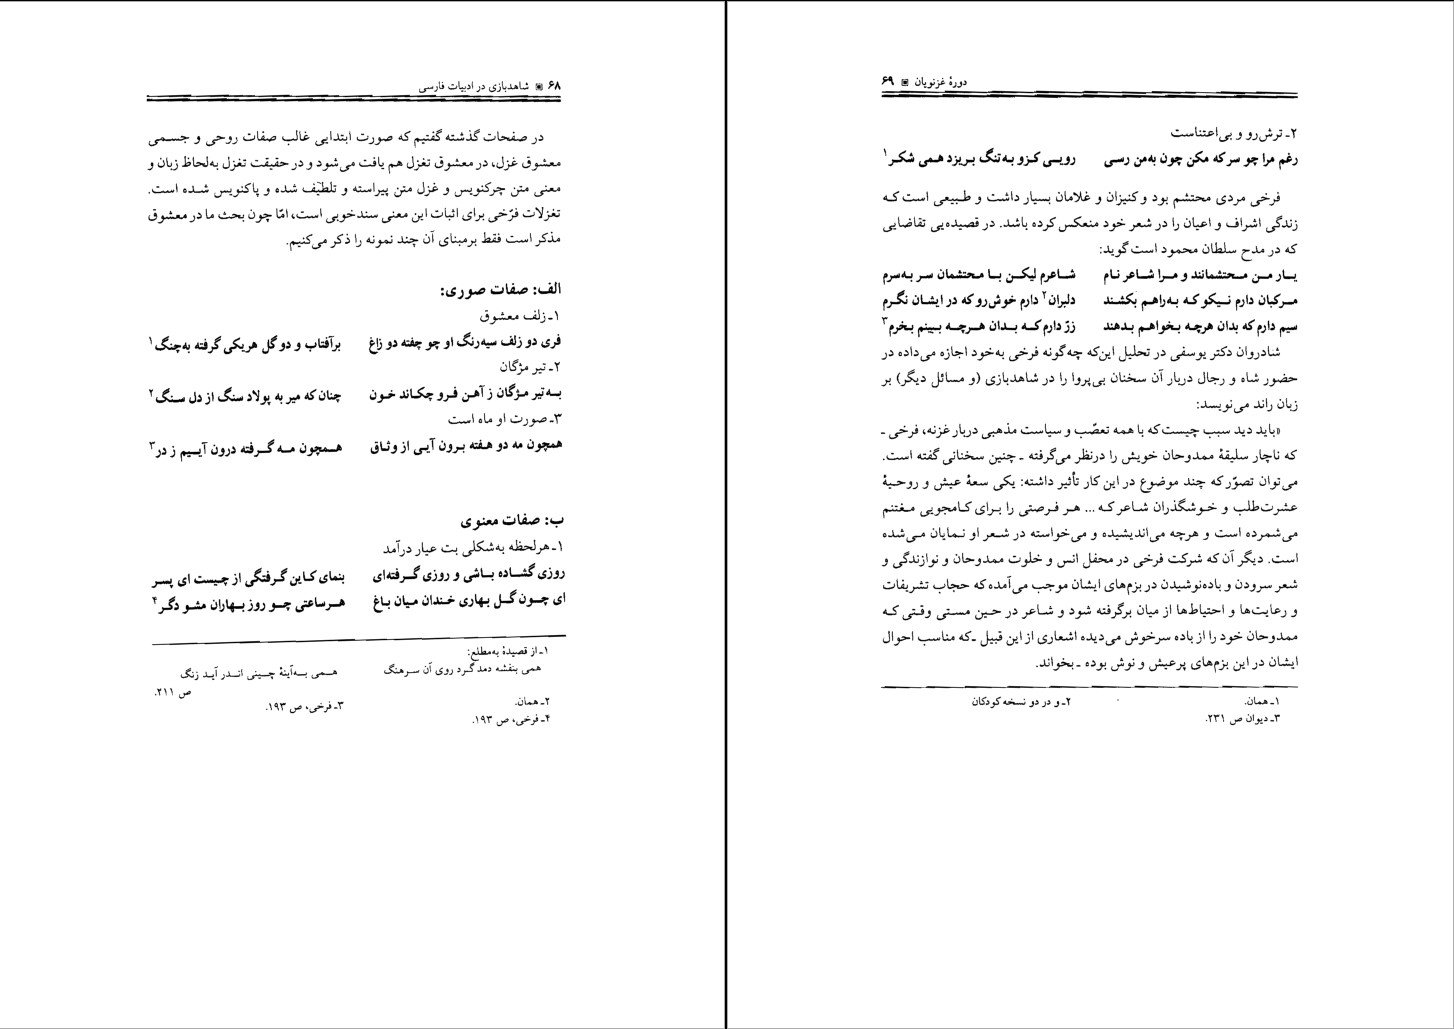 ۶۸ ▣ شاهدبازی در ادبیات فارسی
در صفحات گذشته گفتیم که صورت ابتدایی غالب صفات روحی و جسمی
معشوق غزل، در معشوق تغزل هم یافت می‌شود و در حقیقت تغزل به‌لحاظ زبان و
معنی متن چرکنویس و غزل متن پیراسته و تلطیف شده و پاکنویس شده است.
تغزلات فرّخی برای اثبات این معنی سند خوبی است، امّا چون بحث ما در معشوق
مذکر است فقط برمبنای آن چند نمونه را ذکر می‌کنیم.
الف: صفات صوری:
۱ـ زلف معشوق
فری دو زلف سیه‌رنگ او چو چفته دو زاغ برآفتاب و دو گل هریکی گرفته به‌چنگ۱
۲ـ تیر مژگان
به‌تیر مژگان ز آهن فرو چکاند خون چنان که میر به پولاد سنگ از دل سنگ۲
۳ـ صورت او ماه است
همچون مه دو هفته برون آیی از وثاق همچون مه گرفته درون آییم ز در۳
ب: صفات معنوی
۱ـ هرلحظه به‌شکلی بت عیار درآمد
روزی گشاده باشی و روزی گرفته‌ای بنمای کاین گرفتگی از چیست ای پسر
ای چون گل بهاری خندان میان باغ هرساعتی چو روز بهاران مشو دگر۴
۱ـ از قصیدهٔ به‌مطلع:
همی بنفشه دمد گرد روی آن سرهنگ همی به‌آینهٔ چینی اندر آید زنگ
ص ۲۱۱.
۲ـ همان. ۳ـ فرخی، ص ۱۹۳.
۴ـ فرخی، ص ۱۹۳.
دورهٔ غزنویان ▣ ۶۹
۲ـ ترش‌رو و بی‌اعتناست
رغم مرا چو سرکه مکن چون به‌من رسی رویی کزو به‌تنگ بریزد همی شکر۱
فرخی مردی محتشم بود و کنیزان و غلامان بسیار داشت و طبیعی است که
زندگی اشراف و اعیان را در شعر خود منعکس کرده باشد. در قصیده‌یی تقاضایی
که در مدح سلطان محمود است گوید:
یار من محتشمانند و مرا شاعر نام شاعرم لیکن با محتشمان سر به‌سرم
مرکبان دارم نیکو که به‌راهم بکشند دلبران۲ دارم خوش‌رو که در ایشان نگرم
سیم دارم که بدان هرچه بخواهم بدهند زرّ دارم که بدان هرچه ببینم بخرم۳
شادروان دکتر یوسفی در تحلیل این‌که چه‌گونه فرخی به‌خود اجازه می‌داده در
حضور شاه و رجال دربار آن سخنان بی‌پروا را در شاهدبازی (و مسائل دیگر) بر
زبان راند می‌نویسد:
«باید دید سبب چیست که با همه تعصّب و سیاست مذهبی دربار غزنه، فرخی ـ
که ناچار سلیقهٔ ممدوحان خویش را درنظر می‌گرفته ـ چنین سخنانی گفته است.
می‌توان تصوّر که چند موضوع در این کار تأثیر داشته: یکی سعهٔ عیش و روحیهٔ
عشرت‌طلب و خوشگذران شاعر که ... هر فرصتی را برای کامجویی مغتنم
می‌شمرده است و هرچه می‌اندیشیده و می‌خواسته در شعر او نمایان می‌شده
است. دیگر آن که شرکت فرخی در محفل انس و خلوت ممدوحان و نوازندگی و
شعر سرودن و باده‌نوشیدن در بزم‌های ایشان موجب می‌آمده که حجاب تشریفات
و رعایت‌ها و احتیاط‌ها از میان برگرفته شود و شاعر در حین مستی وقتی که
ممدوحان خود را از باده سرخوش می‌دیده اشعاری از این قبیل ـ که مناسب احوال
ایشان در این بزم‌های پرعیش و نوش بوده ـ بخواند.
۱ـ همان. ۲ـ و در دو نسخه کودکان
۳ـ دیوان ص ۲۳۱.